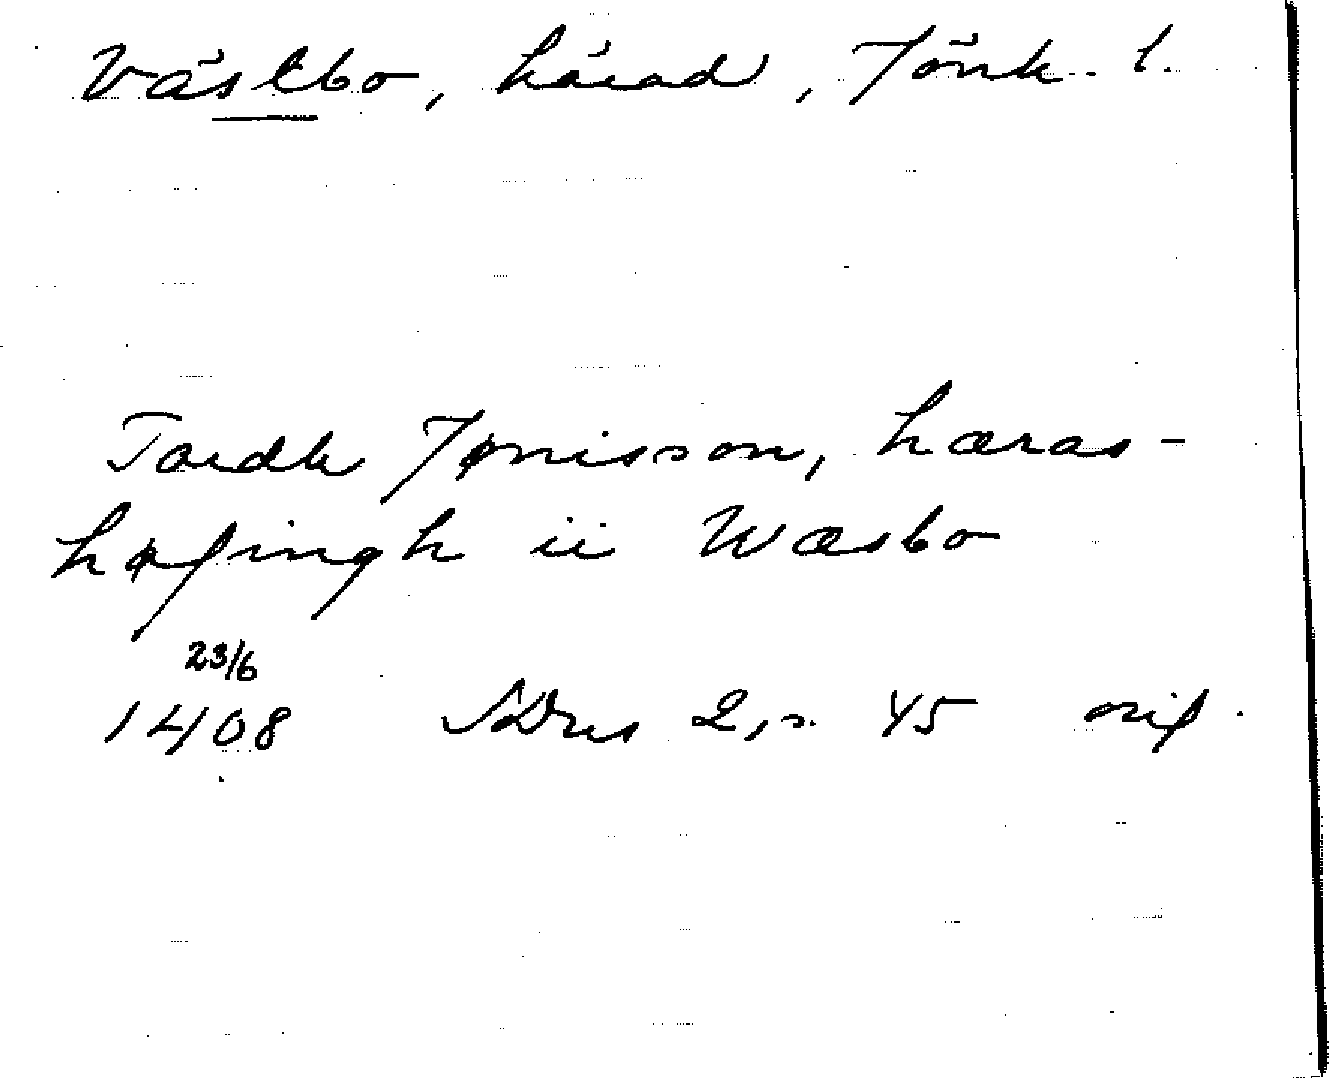 Västbo, härad, Jönk. l.
Tordh Jønisson, hæras-
høfingh ii Wæsbo
23/6
1408 SDns 2, s. 45 orig.